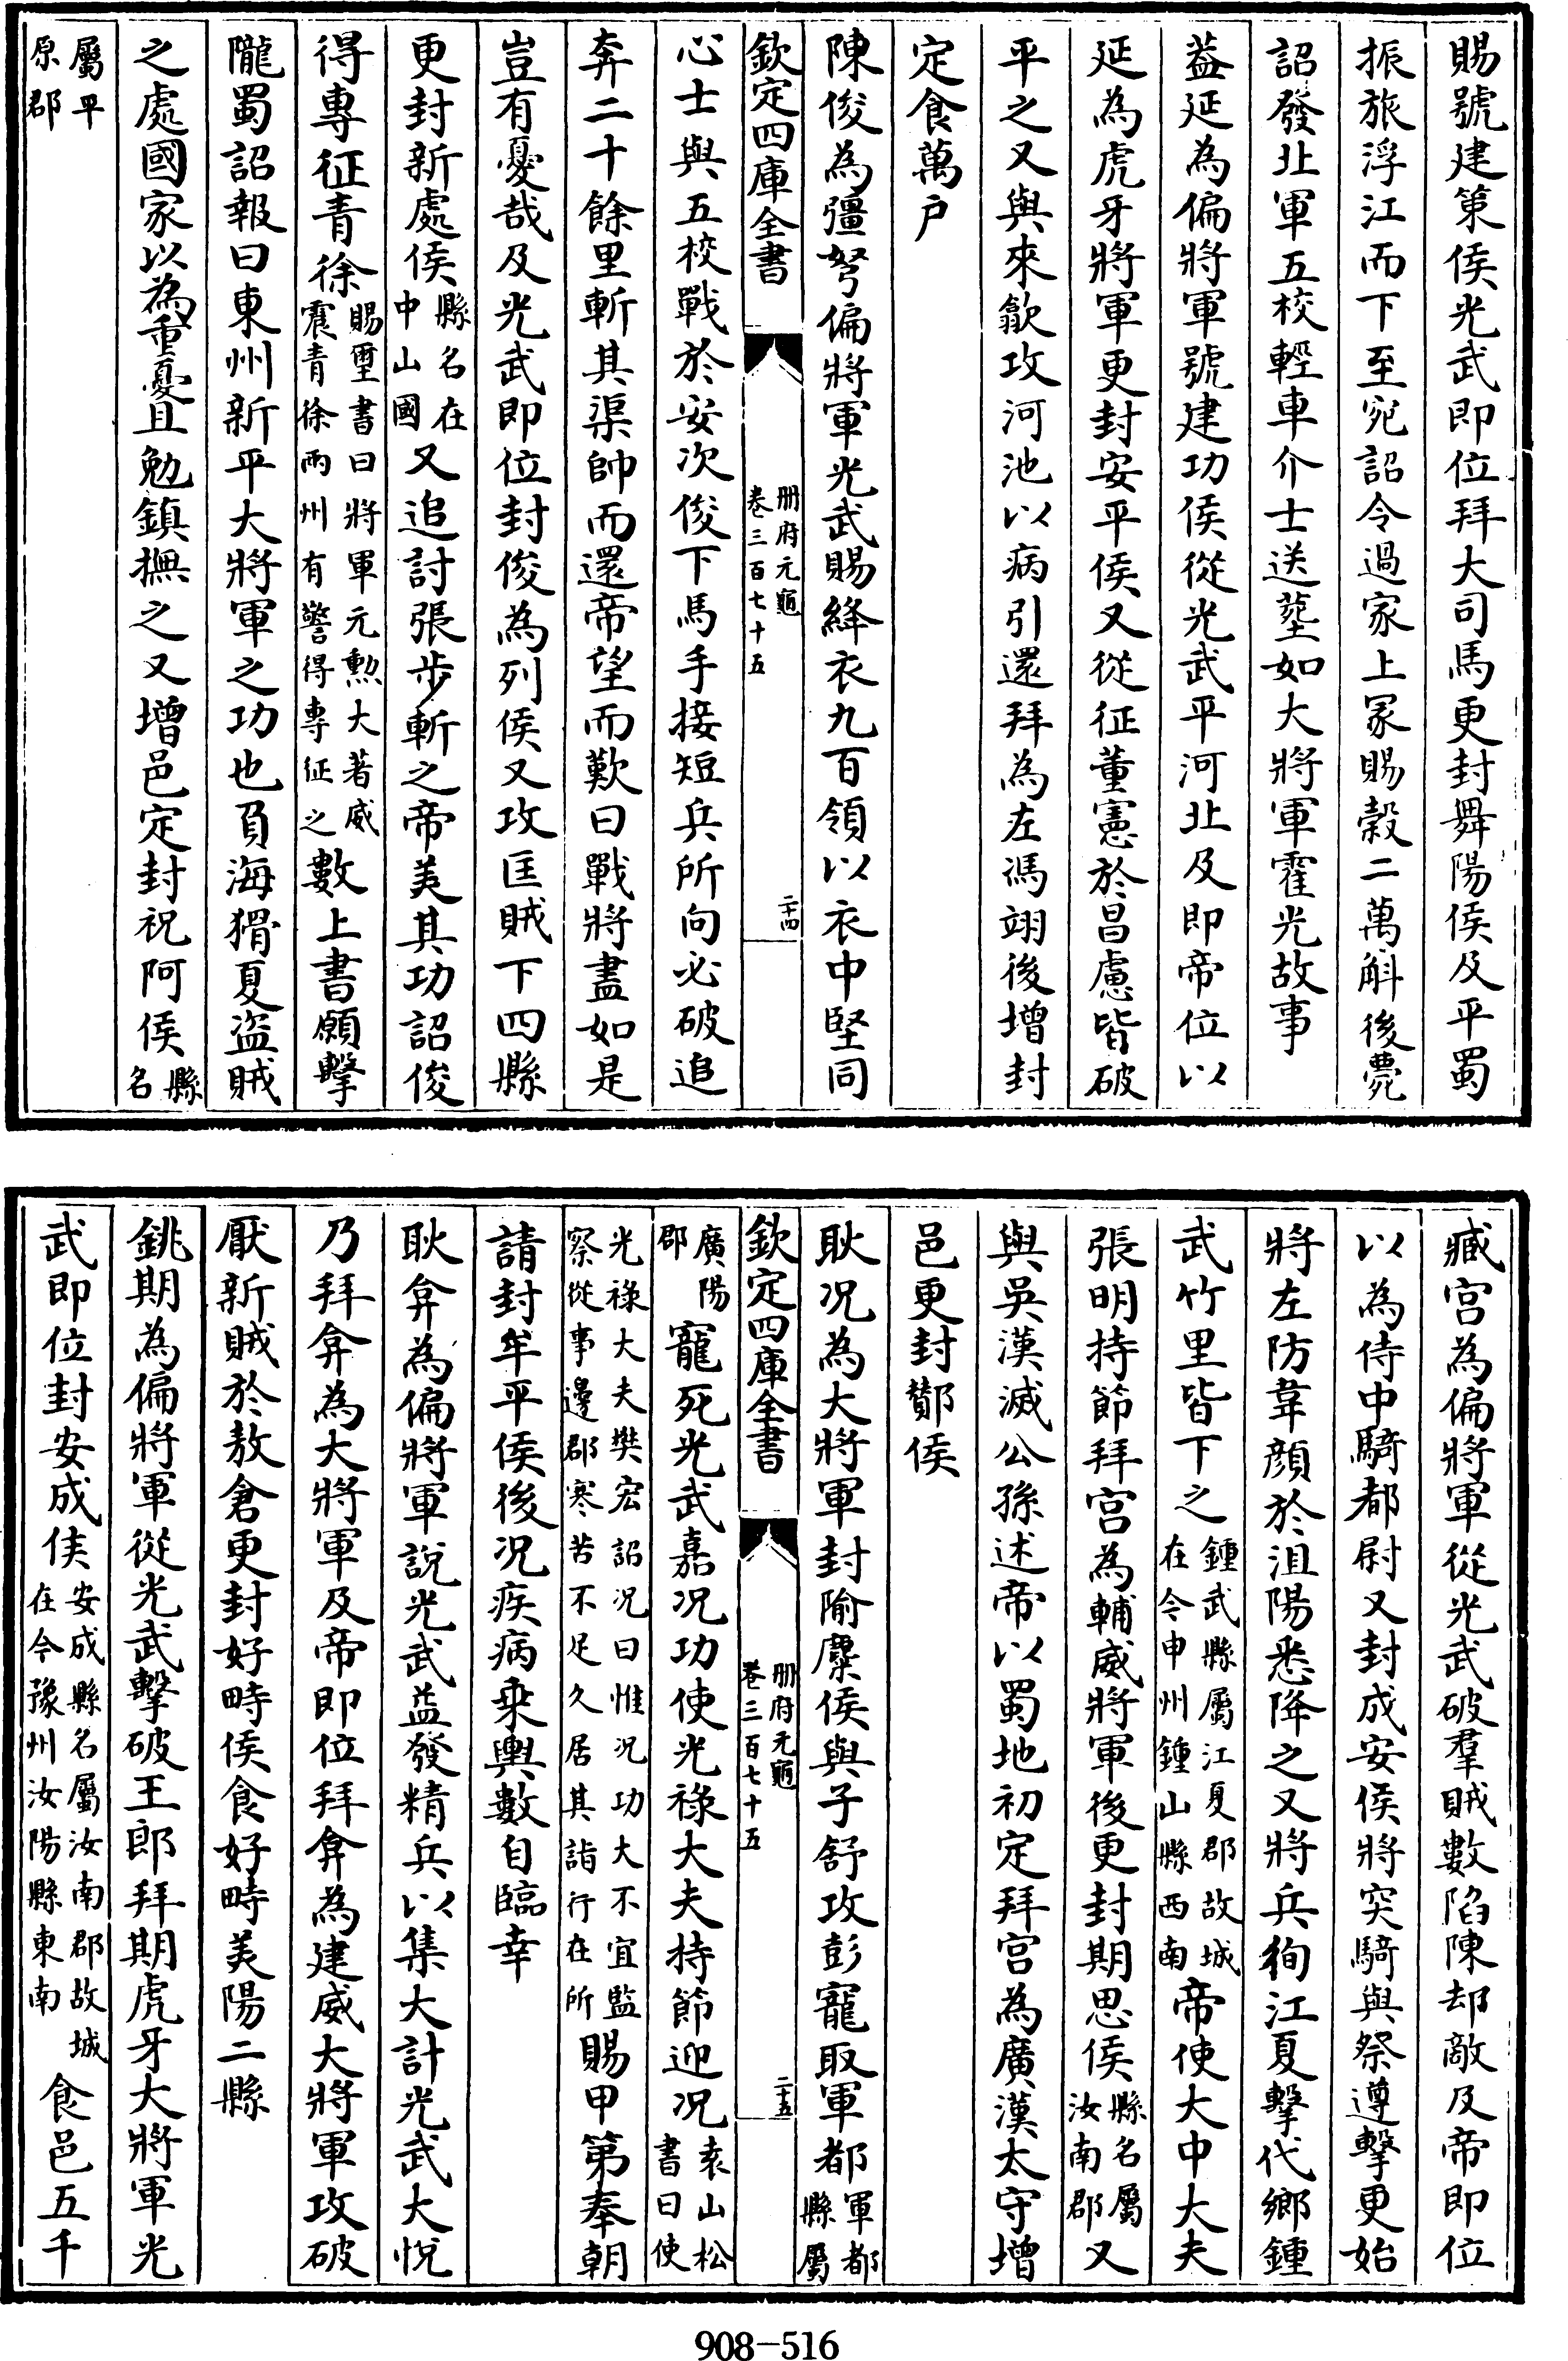 賜號建策侯光武即位拜大司馬更封舞陽侯及平蜀
振旅浮江而下至宛詔令過家上冢賜穀二萬斛後薨
詔發北軍五校輕車介士送塟如大將軍霍光故事
蓋延為偏將軍號建功侯從光武平河北及即帝位以
延為虎牙將軍更封安平侯又從征董憲於昌慮皆破
平之又與來歙攻河池以病引還拜為左馮翊後增封
定食萬户
陳俊為彊弩偏將軍光武賜絳衣九百領以衣中堅同
欽定四庫全書 册府元龜 卷三百七十五 二十四
心士與五校戰於安次俊下馬手接短兵所向必破追
奔二十餘里斬其渠帥而還帝望而歎曰戰將盡如是
豈有憂哉及光武即位封俊為列侯又攻匡賊下四縣
更封新處侯縣名在中山國又追討張步斬之帝美其功詔俊
得專征青徐賜璽書曰將軍元勲大著威震青徐兩州有警得專征之數上書願擊
隴蜀詔報曰東州新平大將軍之功也負海猾夏盜賊
之處國家以為重憂且勉鎮撫之又增邑定封祝阿侯縣名
屬平原郡
臧宫為偏將軍從光武破羣賊數陷陳却敵及帝即位
以為侍中騎都尉又封成安侯將突騎與祭遵擊更始
將左防韋顔於沮陽悉降之又將兵狥江夏擊代鄉鍾
武竹里皆下之鍾武縣屬江夏郡故城在今申州鍾山縣西南帝使大中大夫
張明持節拜宫為輔威將軍後更封期思侯縣名屬汝南郡又
與吳漢滅公孫述帝以蜀地初定拜宫為廣漢太守增
邑更封酇侯
耿况為大將軍封隃麋侯與子舒攻彭寵取軍都軍都縣屬
欽定四庫全書 册府元龜 卷三百七十五 二十五
廣陽郡寵死光武嘉况功使光祿大夫持節迎况袁山松書曰使
光祿大夫樊宏詔况曰惟况功大不宜監察從事邊郡寒苦不足久居其詣行在所賜甲第奉朝
請封牟平侯後况疾病乗輿數自臨幸
耿弇為偏將軍說光武益發精兵以集大計光武大悅
乃拜弇為大將軍及帝即位拜弇為建威大將軍攻破
厭新賊於敖倉更封好畤侯食好畤美陽二縣
銚期為偏將軍從光武擊破王郎拜期虎牙大將軍光
武即位封安成侯安成縣名屬汝南郡故城在今豫州汝陽縣東南食邑五千
908-516